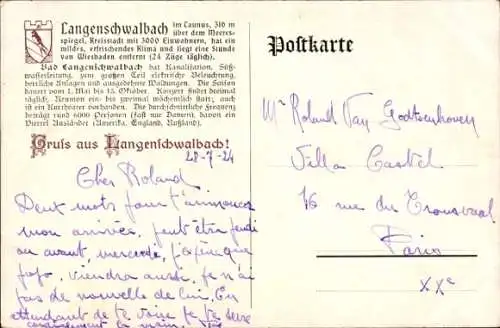 Langenschwalbach im Taunus, 316 m
über dem Meeres-
spiegel, Kreisstadt mit 3000 Einwohnern, hat ein
mildes, erfrischendes Klima und liegt eine Stunde
von Wiesbaden entfernt (24 Züge täglich).
Bad Langenschwalbach hat Kanalisation, Süß-
wasserleitung, zum großen Teil elektrische Beleuchtung,
herrliche Anlagen und ausgedehnte Waldungen. Die Saison
dauert vom 1. Mai bis 15. Oktober. Konzert findet dreimal
täglich, Reunion ein- bis zweimal wöchentlich statt; auch
ist ein Kurtheater vorhanden. Die durchschnittliche Frequenz
beträgt rund 6000 Personen (fast nur Damen), davon ein
Viertel Ausländer (Amerika, England, Rußland).
Gruß aus Langenschwalbach!
28-7-24
Postkarte
Cher Roland
Deux mots pour t'annoncer
mon arrivée, peut être jeudi
ou avant, mercredi, j'espère que
viendra aussi, je n'ai
pas de nouvelle de lui. En
attendant de te voire je te serre
cordialement la main.
Mr Roland Van Godtsenhoven
Villa Castel
16 rue du Transvaal
Paris
XXe